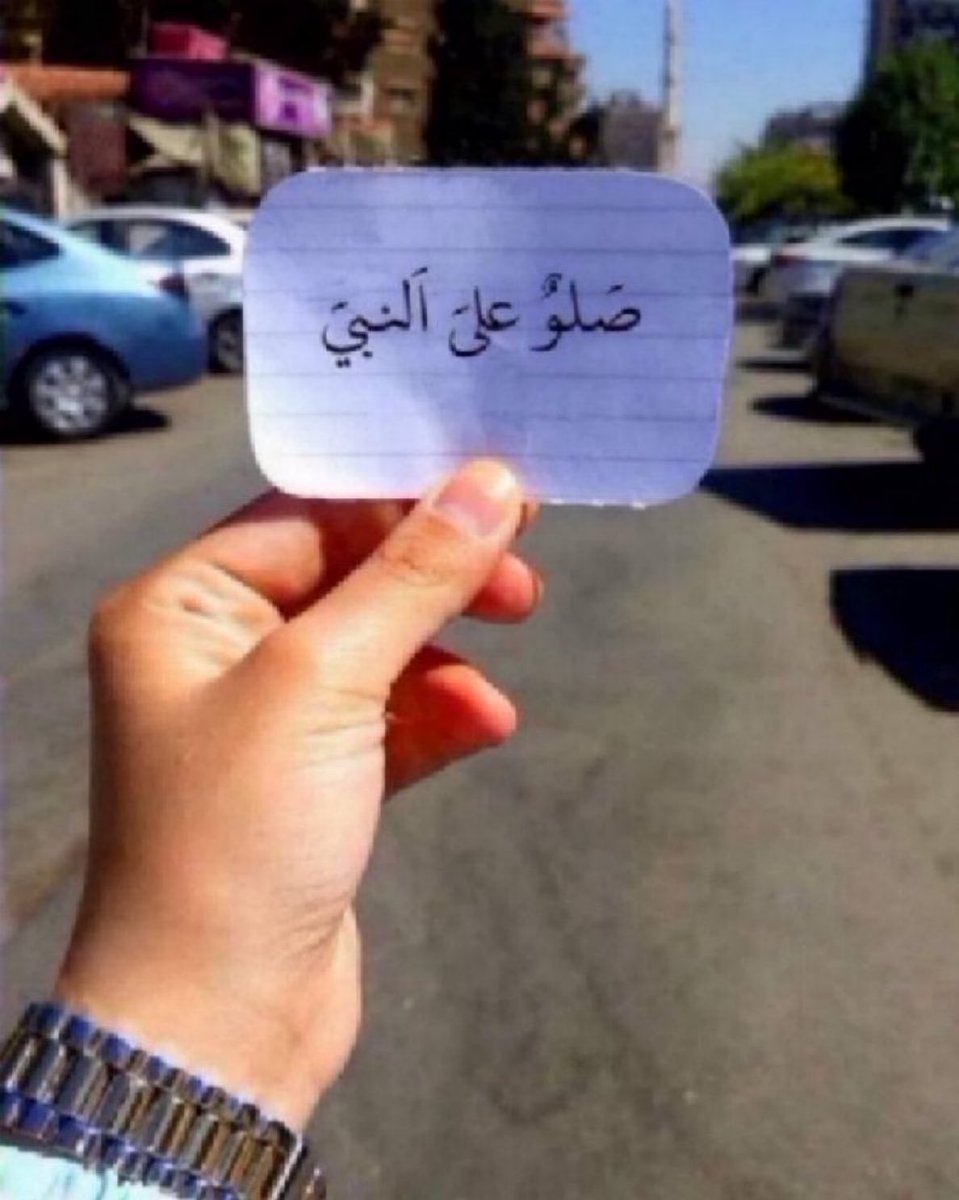 صَلوٌ علىَ اَلنبيَ